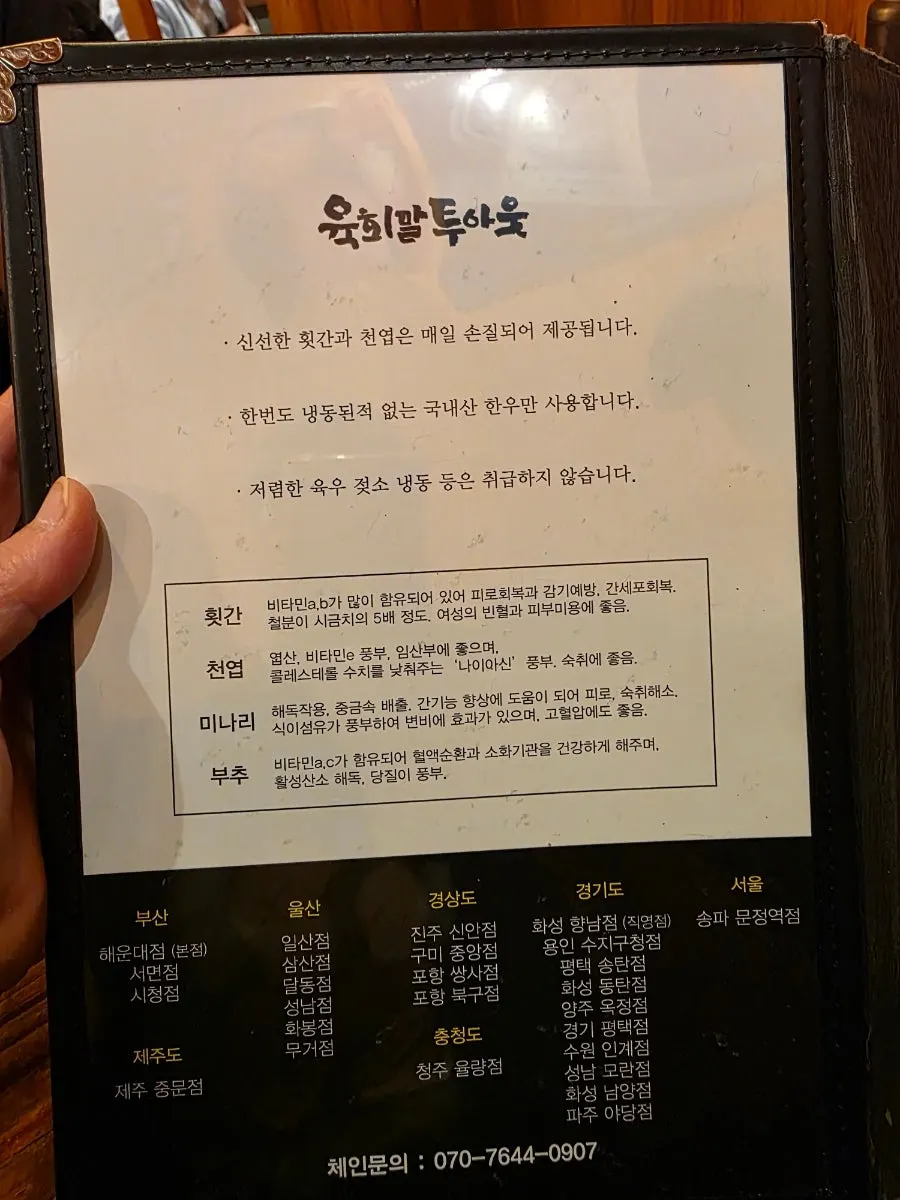 육회말투아웃
· 신선한 횟간과 천엽은 매일 손질되어 제공됩니다.
· 한번도 냉동된적 없는 국내산 한우만 사용합니다.
· 저렴한 육우 젖소 냉동 등은 취급하지 않습니다.
횟간
비타민a,b가 많이 함유되어 있어 피로회복과 감기예방, 간세포회복.
철분이 시금치의 5배 정도. 여성의 빈혈과 피부미용에 좋음.
천엽
엽산, 비타민e 풍부, 임산부에 좋으며,
콜레스테롤 수치를 낮춰주는 ‘나이아신’ 풍부. 숙취에 좋음.
미나리
해독작용, 중금속 배출. 간기능 향상에 도움이 되어 피로, 숙취해소.
식이섬유가 풍부하여 변비에 효과가 있으며, 고혈압에도 좋음.
부추
비타민a,c가 함유되어 혈액순환과 소화기관을 건강하게 해주며,
활성산소 해독, 당질이 풍부.
부산
해운대점 (본점)
서면점
시청점
제주도
제주 중문점
울산
일산점
삼산점
달동점
성남점
화봉점
무거점
경상도
진주 신안점
구미 중앙점
포항 쌍사점
포항 북구점
충청도
청주 율량점
경기도
화성 향남점 (직영점)
용인 수지구청점
평택 송탄점
화성 동탄점
양주 옥정점
경기 평택점
수원 인계점
성남 모란점
화성 남양점
파주 야당점
서울
송파 문정역점
체인문의 : 070-7644-0907